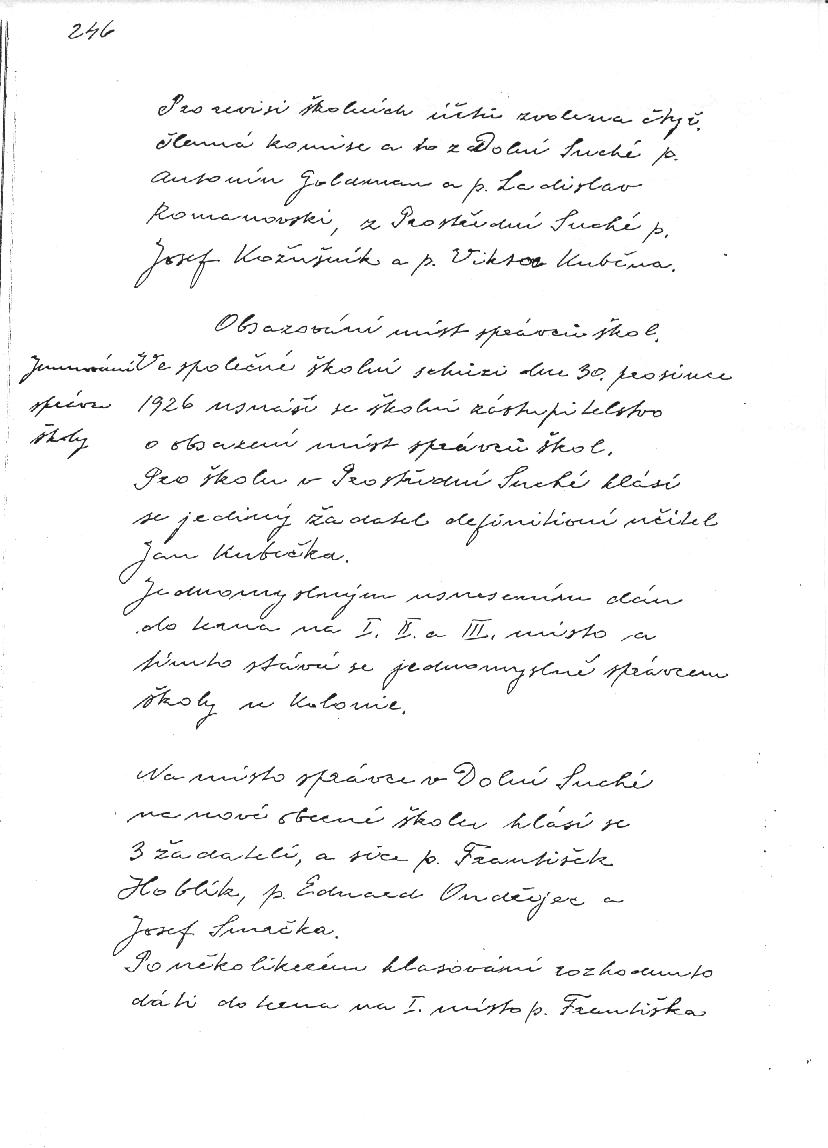 246
Pro revisi školních účtů zvolena čtyř.
členná komise a to z Dolní Suché p.
Antonín Goldman a p. Ladislav
Romanovski, z Prostřední Suché p.
Josef Kožušník a p. Viktor Kubčna.
Obsazování míst správců škol.
Jmenování
správce
školy
Ve společné školní schůzi dne 30. prosince
1926 usnáší se školní zástupitelstvo
o obsazení míst správců škol.
Pro školu v Prostřední Suché hlásí
se jediný žadatel definitivní učitel
Jan Kubička.
Jednomyslným usnesením dán
do terna na I. II. a III. místo a
tímto stává se jednomyslně správcem
školy u Kolonie.
Na místo správce v Dolní Suché
na nové obecné školu hlásí se
3 žadatelí, a sice p. František
Hoblík, p. Eduard Ondějec a
Josef Smačka.
Po několikerém hlasování rozhodnuto
dáti do terna na I. místo p. Františka